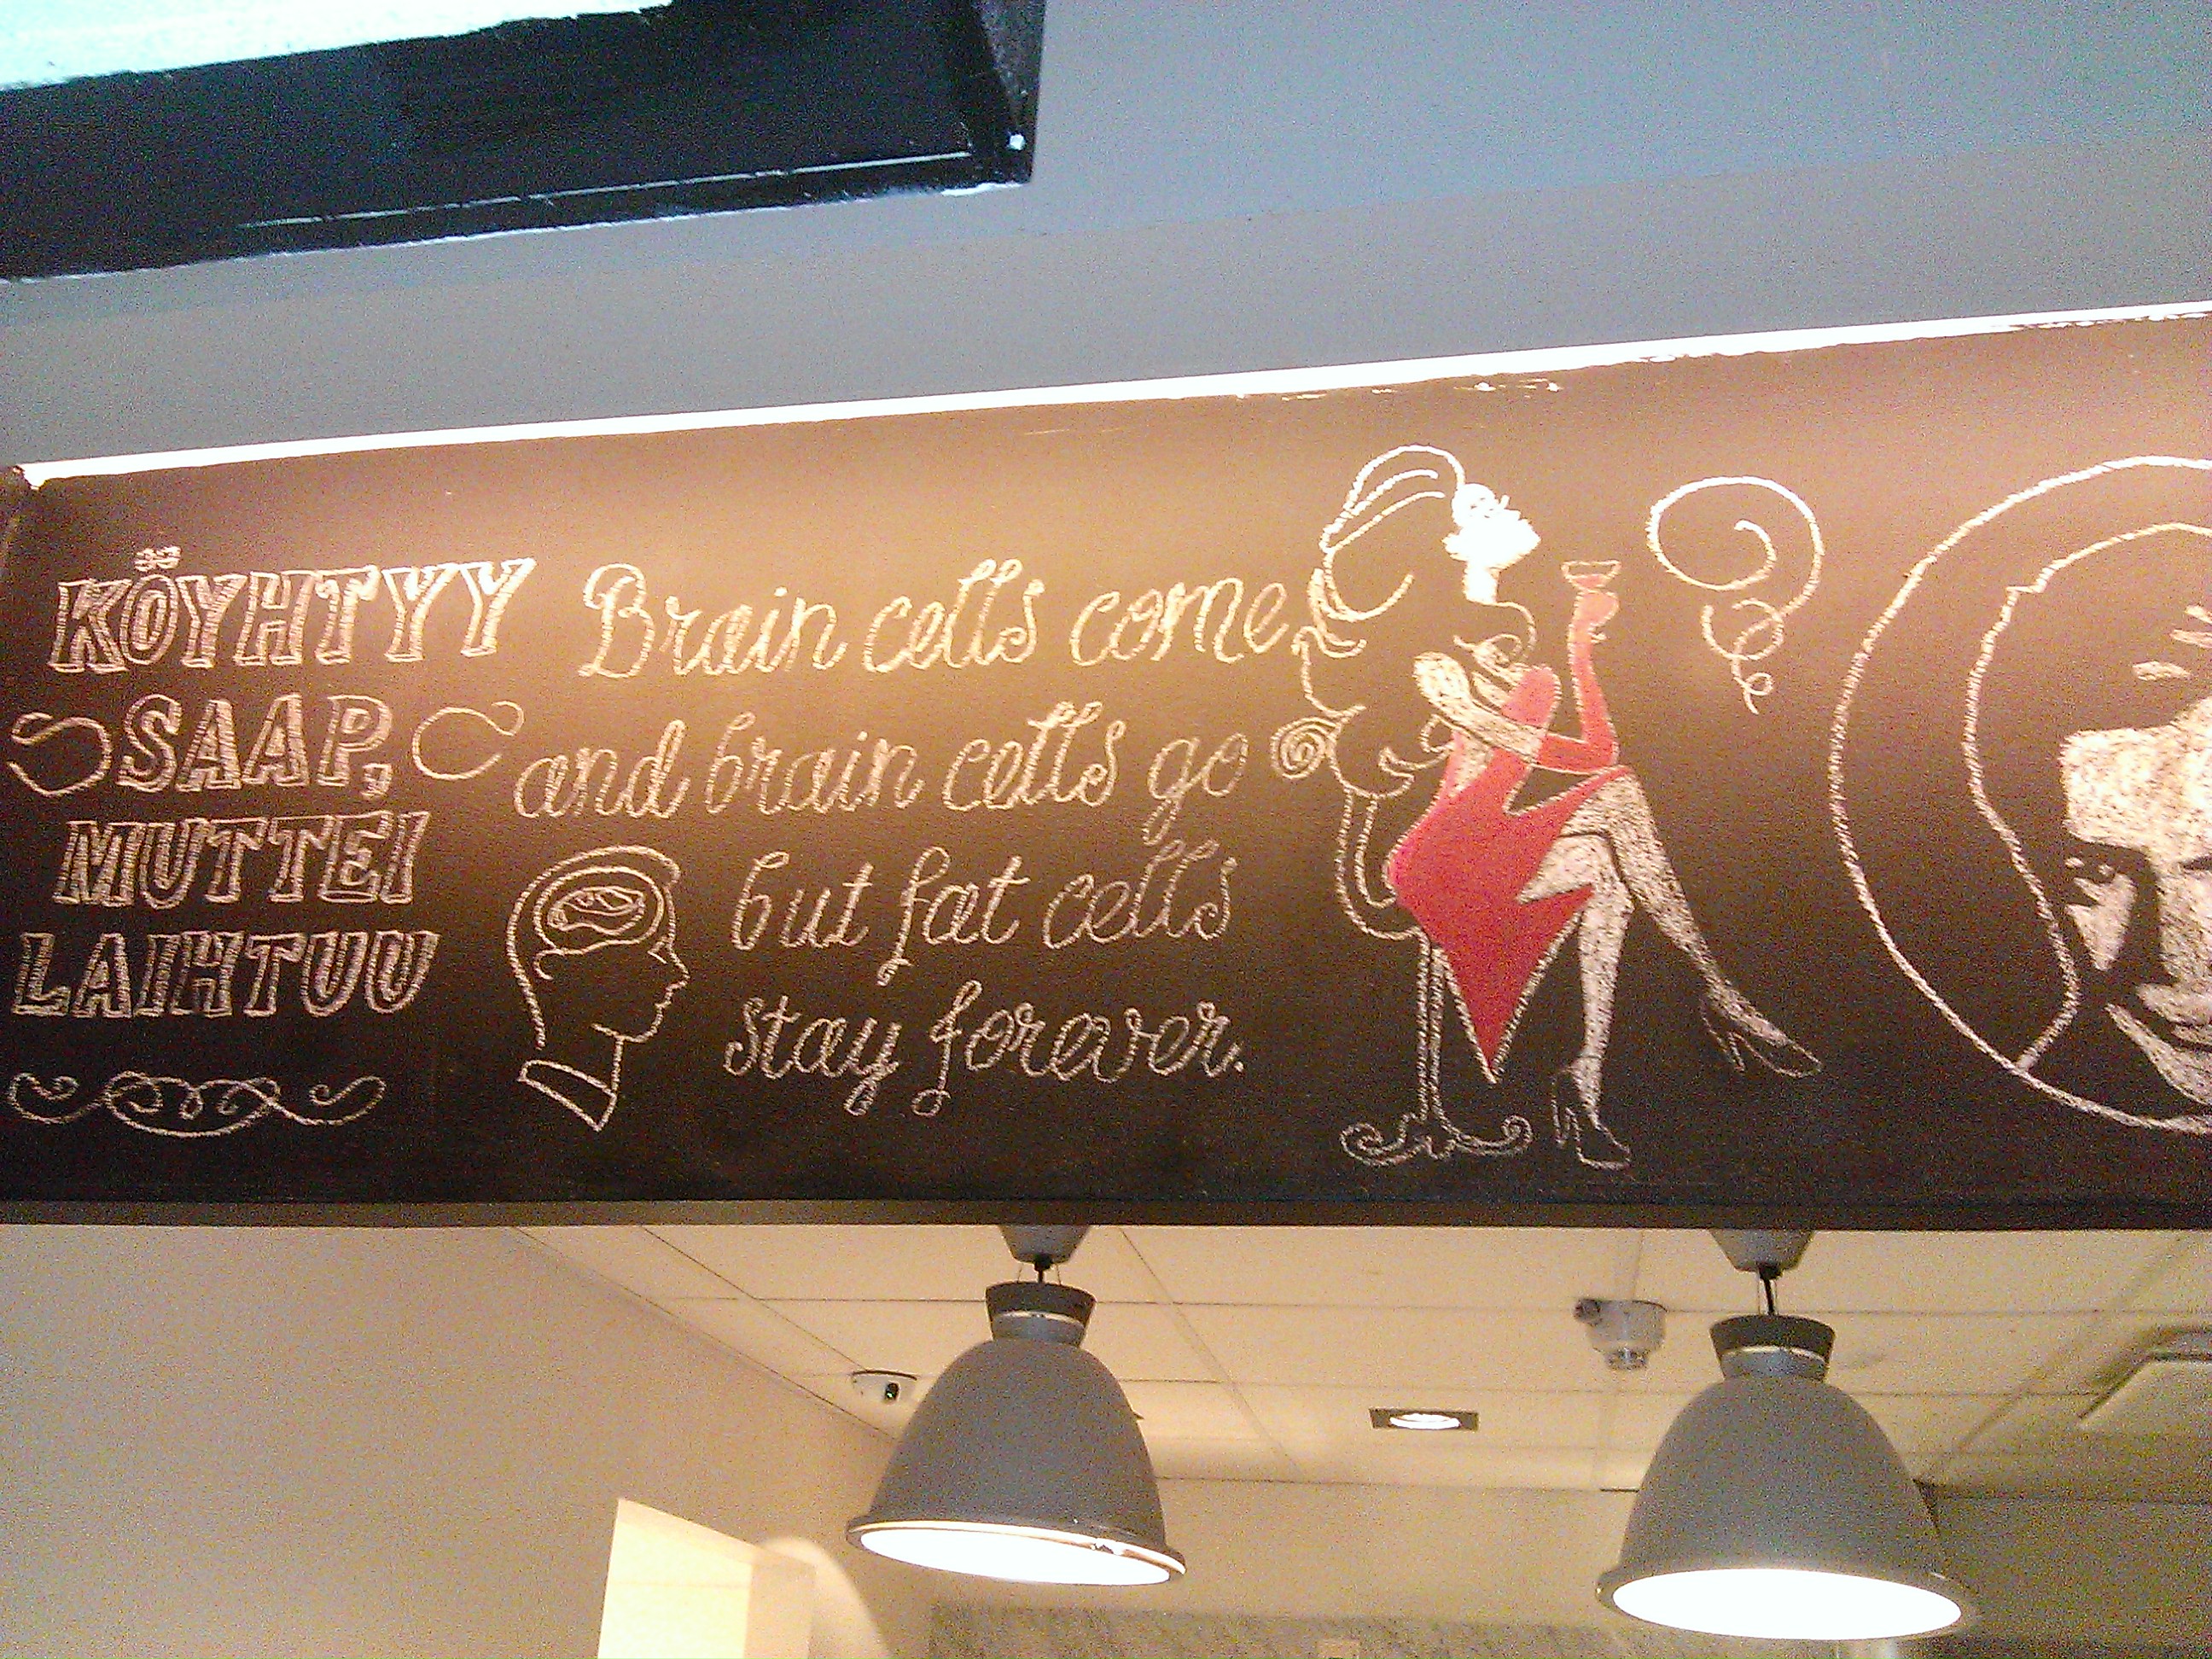 KÖYHTYY
SAAP,
MUTTEI
LAIHTUU
Brain cells come
and brain cells go
but fat cells
stay forever.